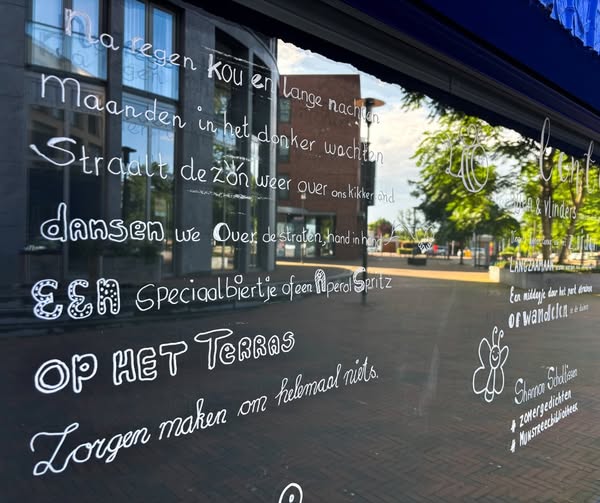 Na regen kou en lange nachten
Maanden in het donker wachten
Straalt de zon weer over ons kikker and
dansen we over de straten, hand in hand
EEN Speciaalbiertje of een Aperol Spritz
OP HET TERRAS
Zorgen maken om helemaal niets.
lent
& vlinders
LANGZAAM
Een middagje door het park
of wandelen in de
Shannon
# zomergedichten
# Mijnstreekbibliotheek